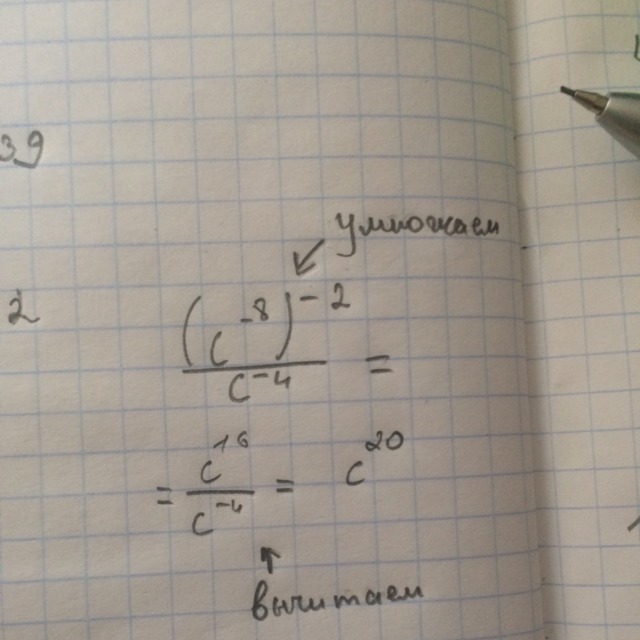 39
умножаем
2
(c⁻⁸)⁻²
c⁻⁴ =
= c¹⁶ / c⁻⁴ = c²⁰
вычитаем